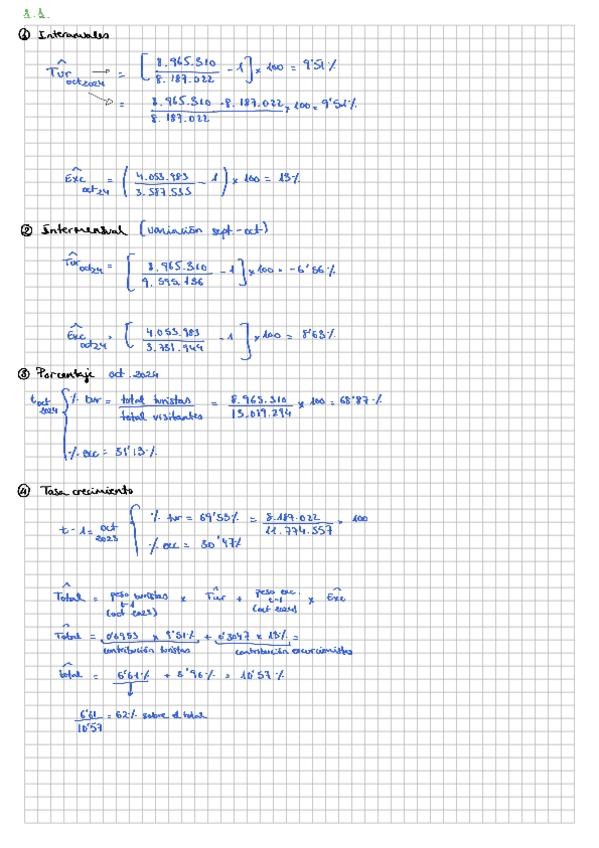 1.1.
① Interanuales
T̂ur oct2024 → = [ 8.965.310 / 8.187.022 - 1 ] × 100 = 9'51%
= 8.965.310 - 8.187.022 / 8.187.022 × 100 = 9'51%
Êxc oct24 = ( 4.053.983 / 3.587.535 - 1 ) × 100 = 13%
② Intermensual (variación sept-oct)
T̂ur oct24 = [ 8.965.310 / 9.595.136 - 1 ] × 100 = -6'56%
Êxc oct24 = [ 4.053.983 / 3.731.944 - 1 ] × 100 = 8'63%
③ Porcentaje oct. 2024
t oct 2024 { % tur = total turistas / total visitantes = 8.965.310 / 13.019.294 × 100 = 68'87%
% exc = 31'13%
④ Tasa crecimiento
t-1 = oct 2023 { % tur = 69'53% = 8.187.022 / 11.774.557 × 100
% exc = 30'47%
T̂otal = peso turistas t-1 (oct 2023) × T̂ur + peso exc. t-1 (oct 2024) × Êxc
T̂otal = 0'6953 × 9'51% + 0'3047 × 13% =
contribución turistas contribución excursionistas
T̂otal = 6'61% + 3'96% = 10'57%
6'61 / 10'57 = 62% sobre el total